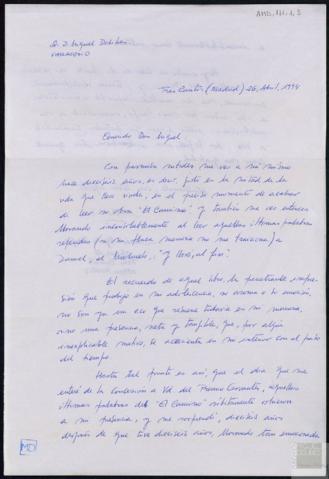 AMD, 111, 1, 5
D. D. Miguel Delibes
VALLADOLID
Tres Cantos (Madrid) 26, Abril, 1994
Querido Don Miguel
Con permiso me veo a mí mismo
hace dieciséis años, es decir, justo en la mitad de la
vida que llevo vivida, en el preciso momento de acabar
de leer su obra "El Camino" y también me veo entonces
llorando inevitablemente al leer aquellas últimas palabras
referidas (si mi flaca memoria no me traiciona) a
Daniel, el Mochuelo, "y lloró, al fin".
El recuerdo de aquel libro, la penetrante impre-
sión que produjo en mi adolescencia, su aroma o su emoción,
no son ya un eco que resuene todavía en mi memoria,
sino una presencia, neta y tangible, que, por algún
inexplicable motivo, se acrecienta en mi interior con el paso
del tiempo.
Hasta tal punto es así, que el día que me
enteré de la concesión a Vd. del Premio Cervantes, aquellas
últimas palabras de "El Camino" súbitamente volvieron
a mi presencia, y me sorprendí, dieciséis años
después de que tuve dieciséis años, llorando tan emocionado
MD